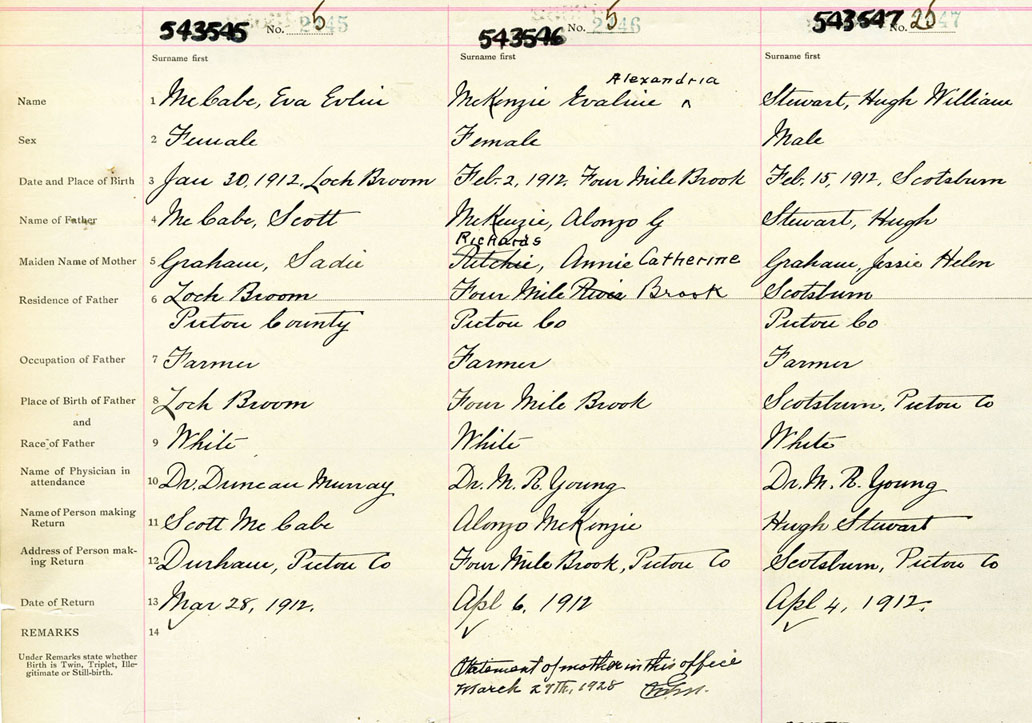 543545 No. 5 45
543546 No. 5 46
543547 No. 25 47
Surname first
Surname first
Surname first
Name 1 McCabe, Eva Evlin McKenzie Evaline ^ Alexandria Stewart, Hugh William
Sex 2 Female Female Male
Date and Place of Birth 3 Jan 30, 1912, Loch Broom Feb. 2, 1912. Four Mile Brook Feb. 15, 1912, Scotsburn
Name of Father 4 McCabe, Scott McKenzie, Alonzo G Stewart, Hugh
Richards
Maiden Name of Mother 5 Graham, Sadie Ritchie, Annie Catherine Graham, Jessie Helen
Residence of Father 6 Loch Broom Four Mile River Brook Scotsburn
Pictou County Pictou Co Pictou Co
Occupation of Father 7 Farmer Farmer Farmer
Place of Birth of Father 8 Loch Broom Four Mile Brook Scotsburn, Pictou Co
and
Race of Father 9 White White White
Name of Physician in
attendance 10 Dr. Duncan Murray Dr. M. R. Young Dr. M. R. Young
Name of Person making
Return 11 Scott McCabe Alonzo McKinzie Hugh Stewart
Address of Person mak-
ing Return 12 Durham, Pictou Co Four Mile Brook, Pictou Co Scotsburn, Pictou Co
Date of Return 13 Mar 28, 1912. Apl 6, 1912 Apl 4, 1912.
REMARKS 14
Under Remarks state whether
Birth is Twin, Triplet, Ille-
gitimate or Still-birth.
Statement of mother in this office
March 27th, 1928